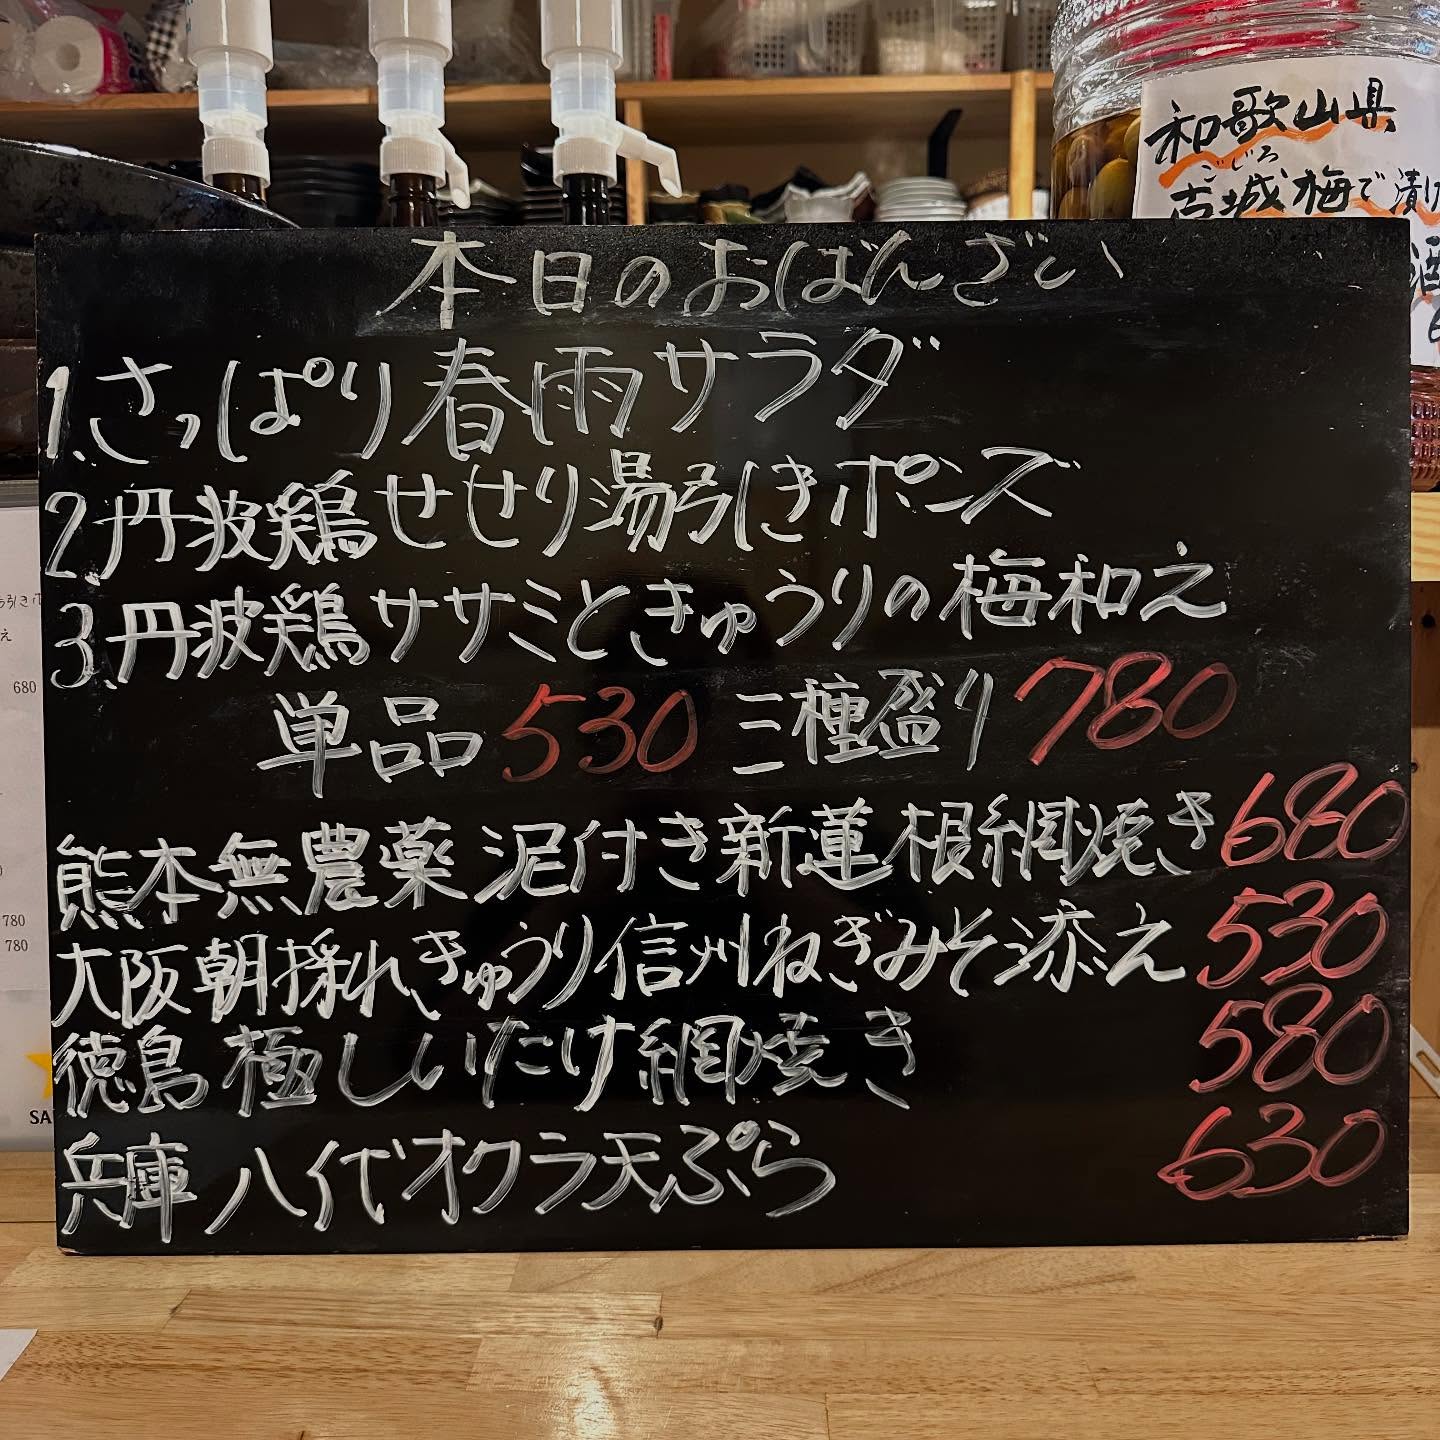 和歌山県
ごじろ
古城梅で漬け
酒
本日のおばんざい
1.さっぱり春雨サラダ
2.丹波鶏せせり湯引きポンズ
3.丹波鶏ササミときゅうりの梅和え
単品530 三種盛り780
熊本無農薬 泥付き新蓮根網焼き 680
大阪朝採れきゅうり信州ねぎみそ添え 530
徳島 極しいたけ網焼き 580
兵庫 八代オクラ天ぷら 630
え
680
780
780
SA